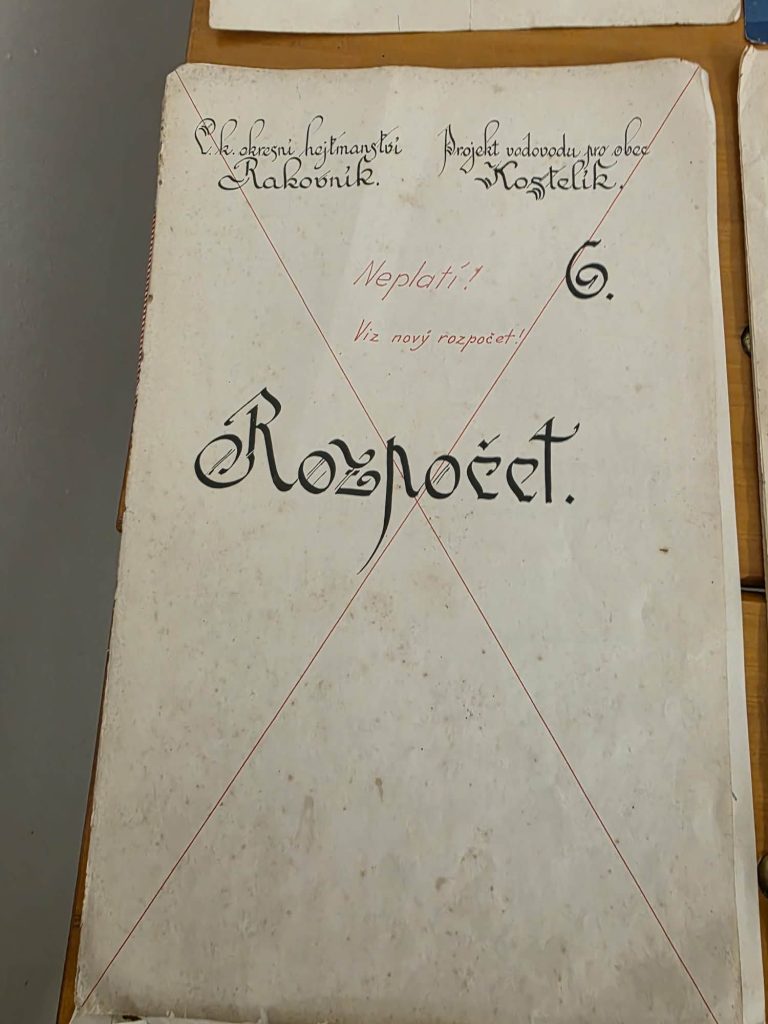 C.k. okresní hejtmanství
Rakovník.
Projekt vodovodu pro obec
Kostelík.
6.
Neplatí!
Viz nový rozpočet!
Rozpočet.